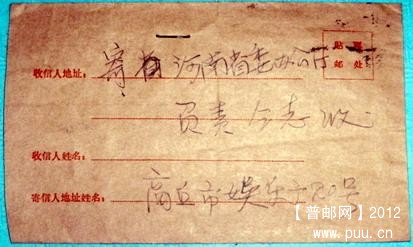 贴票
邮处
收信人地址：寄 河南省委办公厅
负责同志收
收信人姓名：
寄信人地址姓名：商丘市娱乐 20号
【普邮网】2012
www.puu.cn